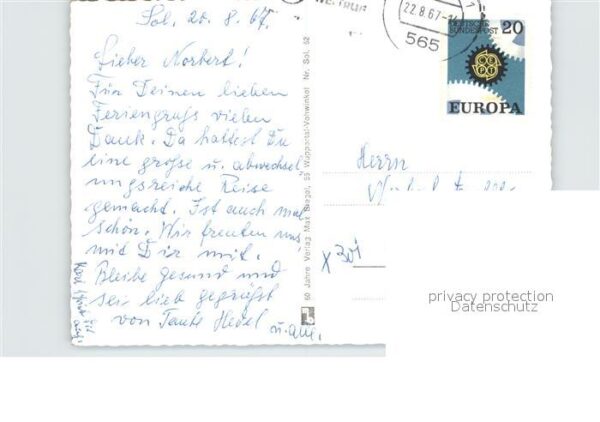 Sol. 20.8.67.
Lieber Norbert!
Für Deinen lieben
Feriengruß vielen
Dank. Da hattest Du
eine große u. abwechsel
ungsreiche Reise
gemacht. Ist auch mal
schön. Wir freuten uns
mit Dir mit.
Bleibe gesund und
sei lieb gegrüßt
von Tante Hedel
u. alle.
60 Jahre Verlag Max Biegel, 56 Wuppertal-Vohwinkel Nr. Sol. 52
22.8.67
565
DEUTSCHE
BUNDESPOST
20
CEPT
EUROPA
Herrn
privacy protection
Datenschutz